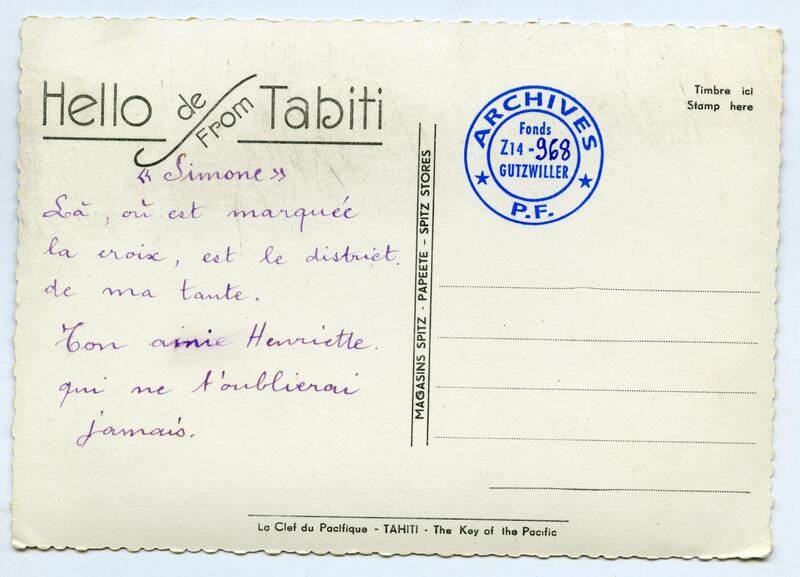 Hello de From Tahiti
« Simone »
Là, où est marquée
la croix, est le district.
de ma tante.
Ton amie Henriette.
qui ne t'oublierai
jamais.
MAGASINS SPITZ - PAPEETE - SPITZ STORES
ARCHIVES
Fonds
Z14 -968
GUTZWILLER
P.F.
Timbre ici
Stamp here
La Clef du Pacifique - TAHITI - The Key of the Pacific